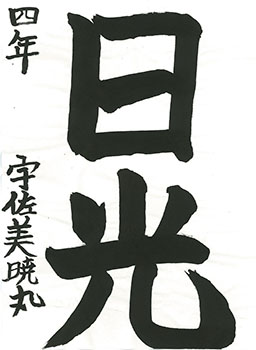 日光
四年
宇佐美暁丸